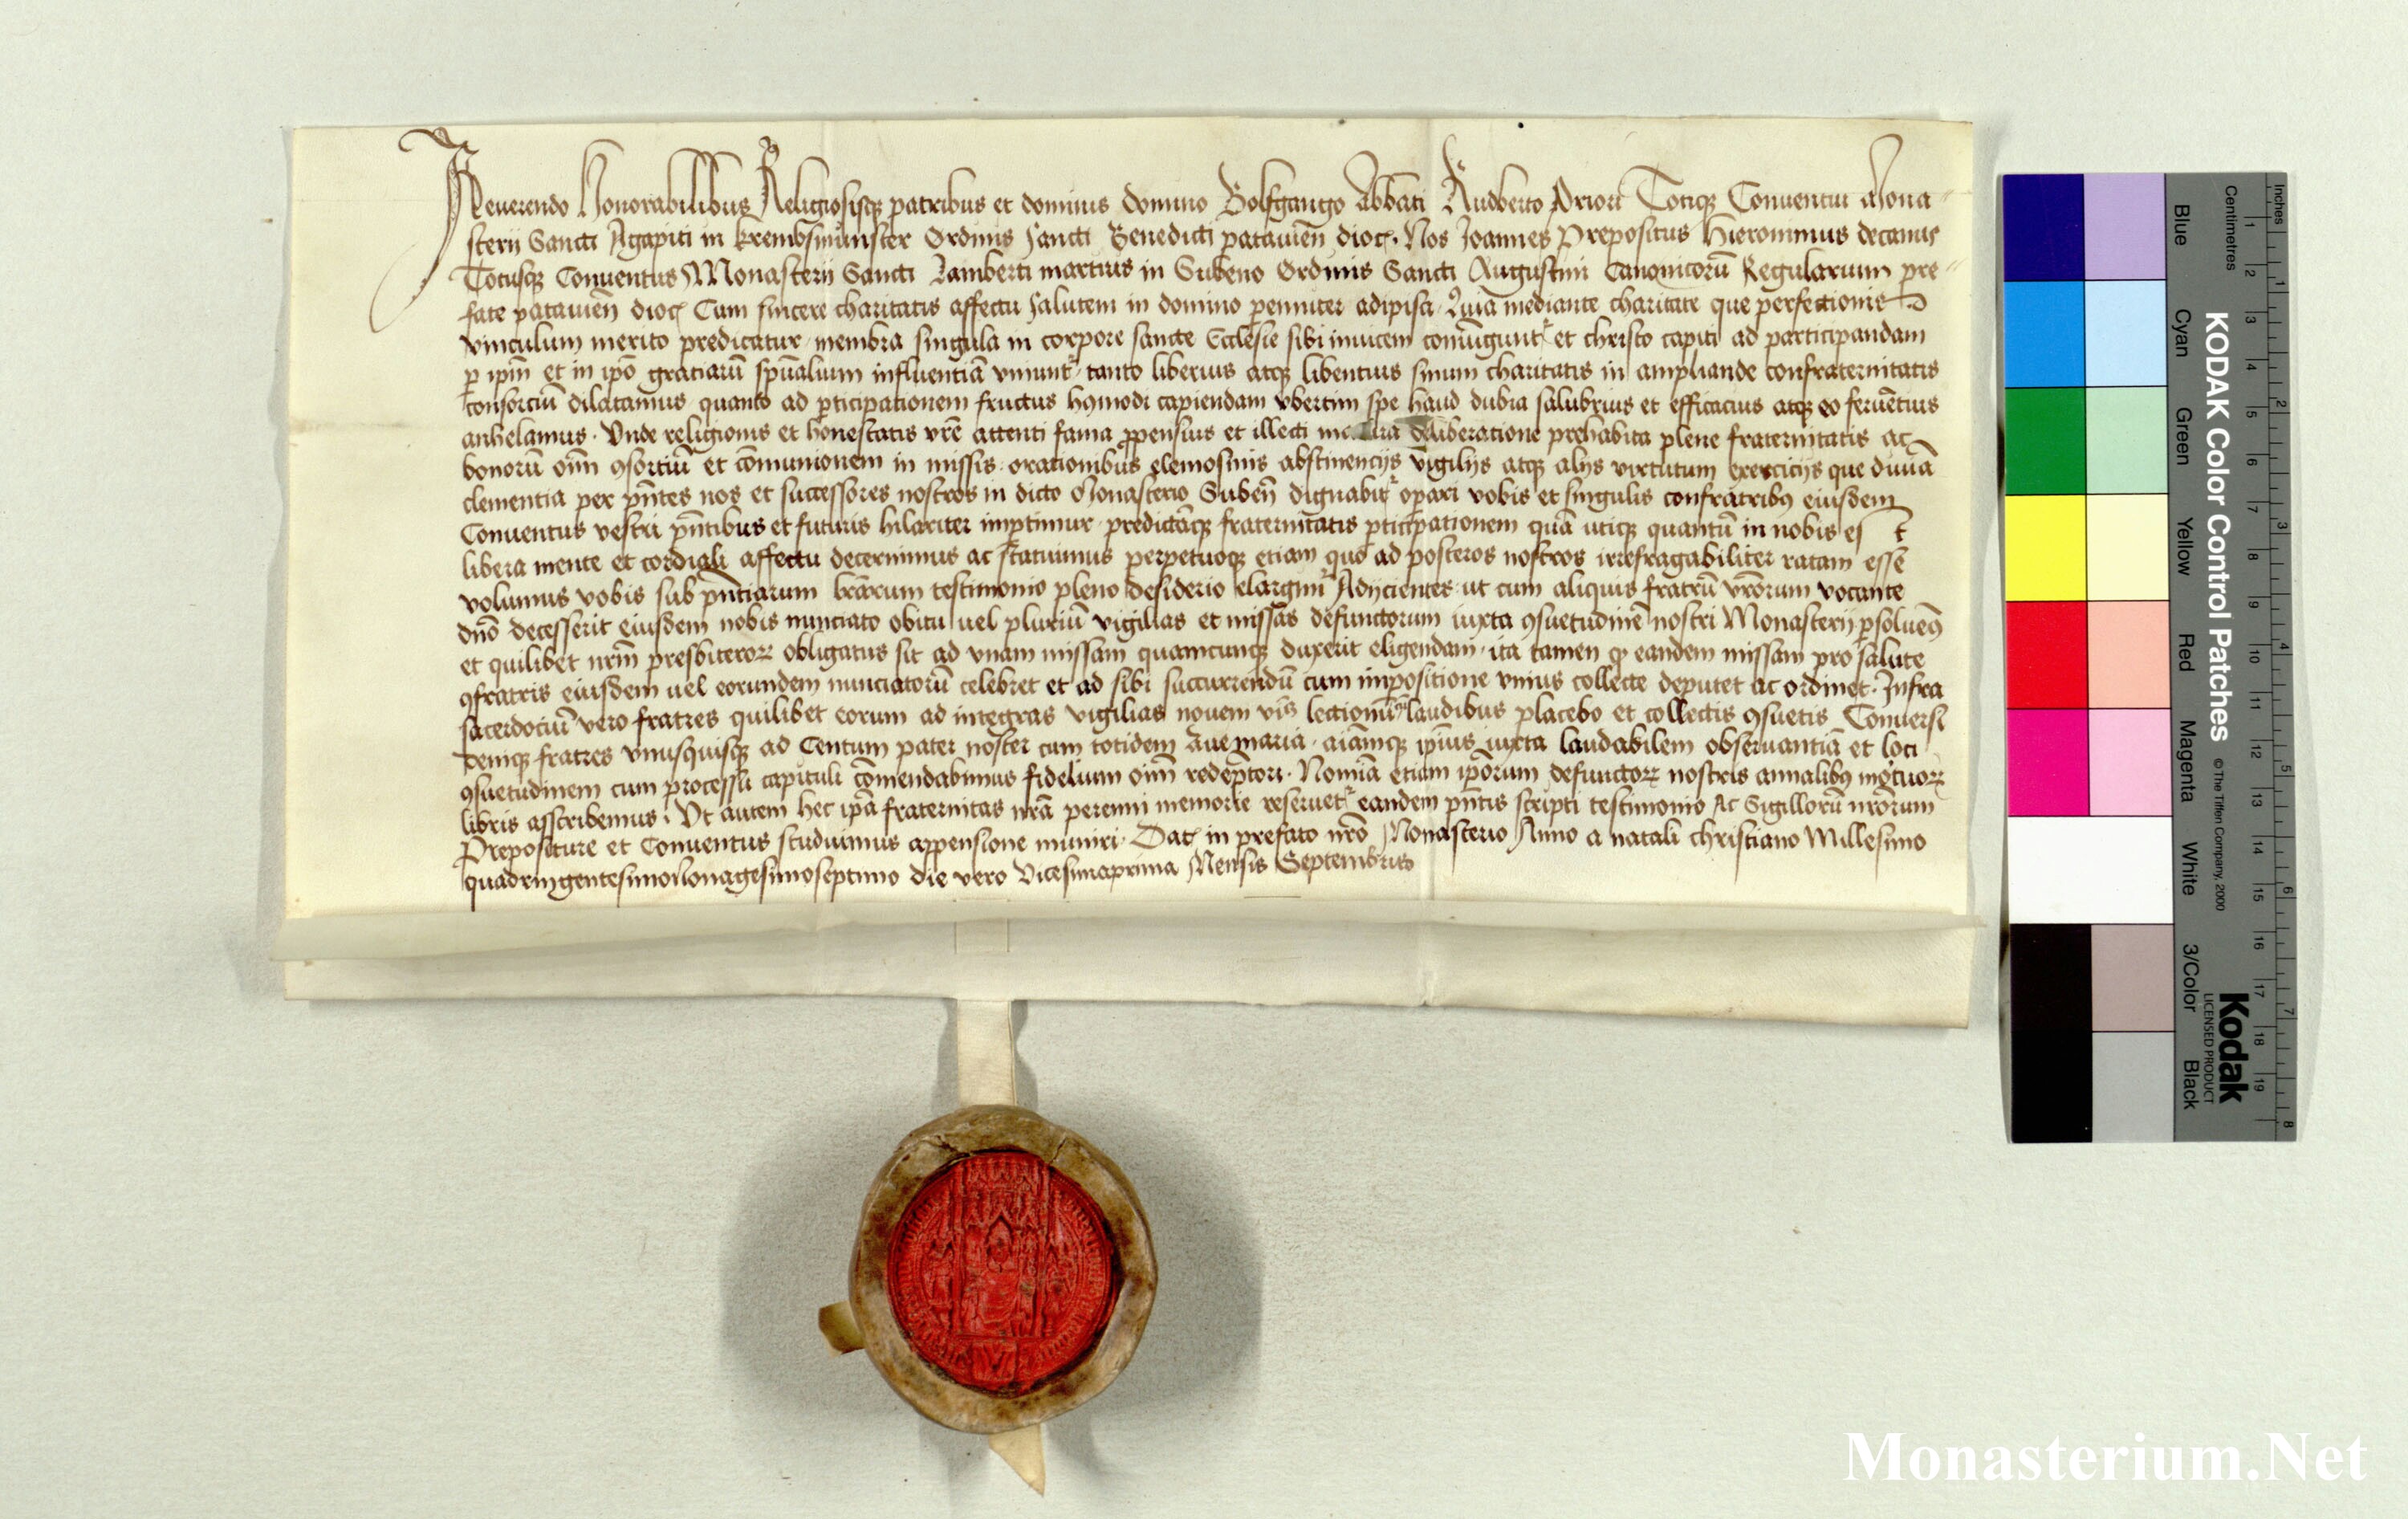 Reuerendo Honorabilibus Religiosisqz patribus et dominis domino Wolfgango Abbati Priori Totiqz Conuentui Mona
sterii Sancti Agapiti in krembsmunster Ordinis sancti Benedicti patauien̄ dioc. Nos Joannes Prepositus Hieronimus decanus
Totusqz Conuentus Monasterii Sancti Lamberti martiris in Subeno Ordinis Sancti Augustini Canonicorū Regularium pre
fate patauien̄ dioc Cum sincere charitatis affectu salutem in domino adipisci Quia mediante charitate que perfectionis
vinculum merito predicatur membra singula in corpore sancte Ecclesie sibi inuicem coniūgunt᷑ et christo capiti ad participandam
ꝑ ip̄m et in ip̄o gratiarū sp̄ualium influentiā vniunt᷑ tanto liberius atqz libentius sinum charitatis in ampliande confraternitatis
consortiū dilatamus quanto ad ꝑticipationem fructus hꝰmodi capiendam vbertim spe haud dubia salubrius et efficacius atqz eo feruētius
anhelamus. Vnde religionis et honestatis vr̄e attenti fama ꝓpensius et illecti deliberatione prehabita plene fraternitatis ac
bonorū oīm ꝯsortiū et cōmunionem in missis orationibus elemosinis abstinencijs vigilijs atqz alijs virtutum exercicijs que diuīa
clementia per pn̄tes nos et successores nostros in dicto Monasterio Suben̄ dignabit᷑ opari vobis et singulis confratribꝰ eiusdem
Conuentus vestri pn̄tibus et futuris hilariter imꝑtimur predictāqz fraternitatis ꝑticipationem quā vtiqz quantū in nobis es t
libera mente et cordiali affectu decernimus ac statuimus perpetuoqz etiam quo ad posteros nostros irrefragabiliter ratam esse
volumus vobis sub pn̄tiarum lr̄arum testimonio pleno desiderio elargim᷑ Adijcientes ut cum aliquis fratrū vr̄orum vocante
dn̄o decesserit eiusdem nobis nunciato obitu uel pluriū vigilias et missas defunctorum iuxta ꝯsuetudinē nostri Monasterij ꝑsoluemꝰ
et quilibet nr̄m presbiteroꝝ obligatus sit ad vnam missam quamcunqz duxerit eligendam ita tamen ꝙ eandem missam pro salute
ꝯfratris eiusdem uel eorundem nunciatorū celebret et ad sibi succurrendū cum impositione vnius collecte deputet ac ordinet. Infra
sacerdociū vero fratres quilibet eorum ad integras vigilias nouem lectionū laudibus placebo et collectis ꝯsuetis Conuersi
deniqz fratres vnusquisqz ad Centum pater noster cum totidem Aue maria aīamqz ip̄ius iuxta laudabilem obseruantiā et loci
ꝯsuetudinem cum processu capituli cōmendabimus fidelium oīm redēptori. Nomīa etiam ip̄orum defunctoꝝ nostris annalibꝰ mortuoꝝ
libris asscribemus. Vt autem hec ip̄a fraternitas nr̄a perenni memorie reseruet᷑ eandem pn̄tis scripti testimonio Ac Sigillorū nr̄orum
Prepositure et Conuentus studuimus appensione muniri. Dat in prefato nr̄o Monasterio Anno a natali christiano Millesimo
quadringentesimoNonagesimoseptimo die vero Vicesimaprima Mensis Septembris
Inches
Centimetres
KODAK Color Control Patches
© The Tiffen Company, 2000
Kodak
LICENSED PRODUCT
Blue
Cyan
Green
Yellow
Red
Magenta
White
3/Color
Black
1
2
3
4
5
6
7
8
9
10
11
12
13
14
15
16
17
18
19
1
2
3
4
5
6
7
8
Monasterium.Net